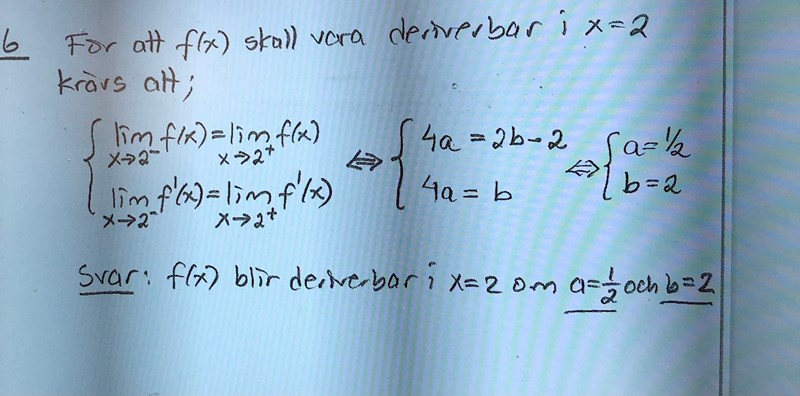 6 För att f(x) skall vara deriverbar i x=2
krävs att;
{ lim x→2⁻ f(x) = lim x→2⁺ f(x) ⇔ { 4a = 2b-2 ⇔ { a=1/2
lim x→2⁻ f'(x) = lim x→2⁺ f'(x) 4a = b b=2
Svar: f(x) blir deriverbar i x=2 om a=1/2 och b=2